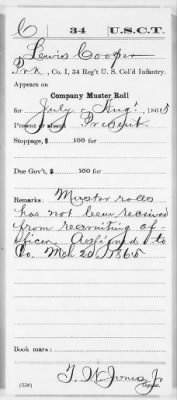 C 34 U.S.C.T.
Lewis Cooper
Pvt., Co. I, 34 Reg't U. S. Col'd Infantry.
Appears on
Company Muster Roll
for July & Aug., 1865
Present or absent Present
Stoppage, $ 100 for
Due Gov't, $ 100 for
Remarks: Muster rolls
has not been received
from recruiting of-
ficer. Assigned to
Co. Mch 20, 1865
Book mark:
T. W. Jones, Jr
(358) Copyist.